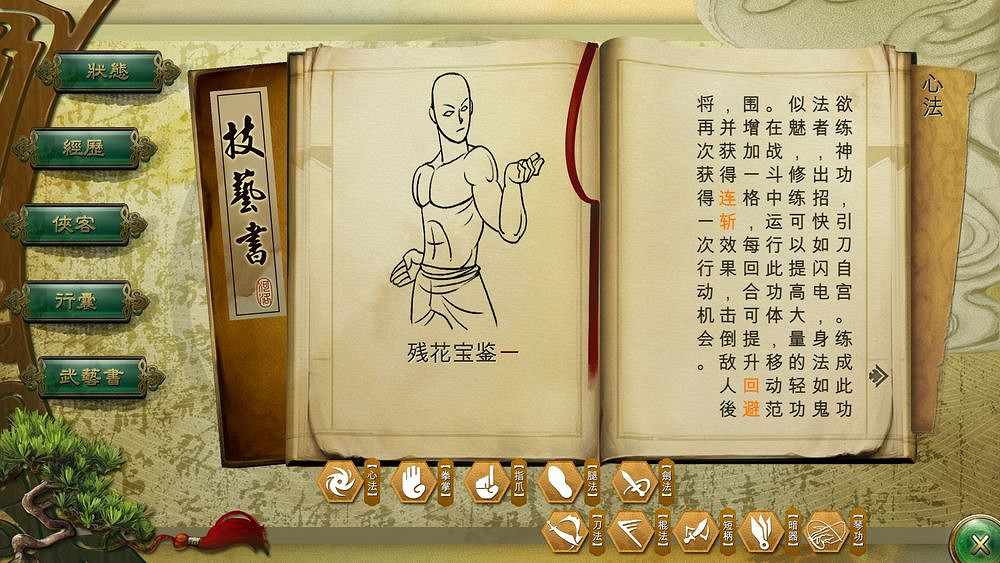 狀態
經歷
俠客
行囊
武藝書
技藝書
残花宝鉴一
心法
欲练神功，引刀自宫。练成此功
法者，出招快如闪电，身法如鬼
似魅，修练可以提高大量的轻功
。在战斗中运行此功体，移动范
围增加一格，每回合可提升回避
，并获得连斩效果，击倒敌人後
将再次获得一次行动机会。
【心法】
【拳掌】
【指爪】
【腿法】
【劍法】
【刀法】
【棍法】
【短柄】
【暗器】
【琴功】